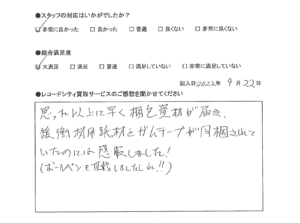 ●スタッフの対応はいかがでしたか？
□非常に良かった □良かった □普通 □良くない □非常に良くない
●総合満足度
□大満足 □満足 □普通 □満足していない □非常に満足していない
記入日2023年 9月22日
●レコードシティ買取サービスのご感想を聞かせてください
思った以上に早く梱包資材が届き、
緩衝材用紙材とガムテープが同梱されて
いたのには感激しました!
(ボールペンも頂戴しましたしね!!)